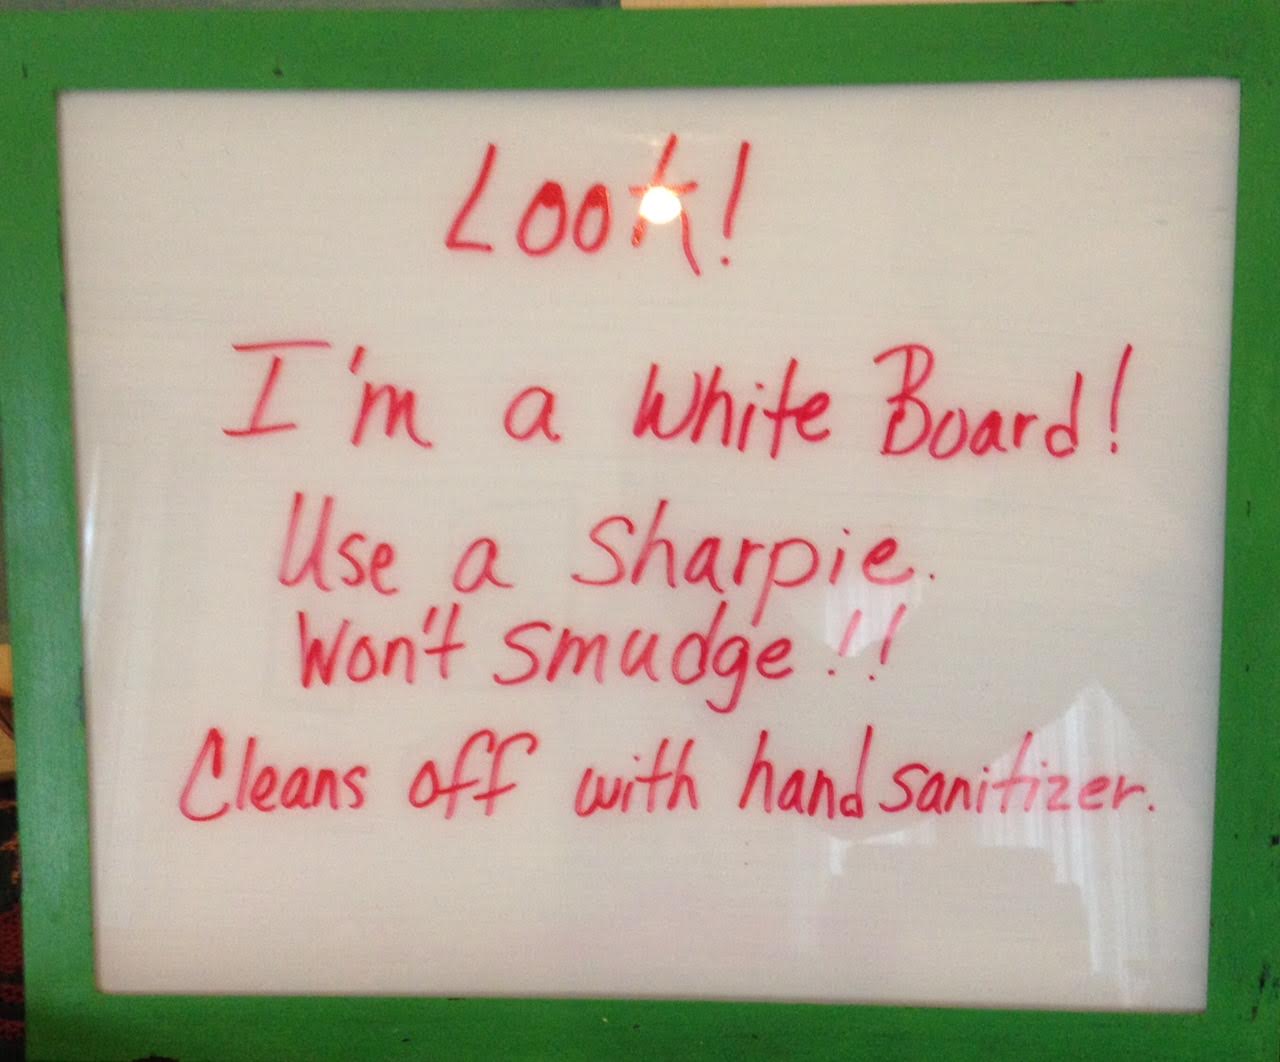 Look!
I'm a White Board!
Use a Sharpie.
Won't smudge!!
Cleans off with hand sanitizer.